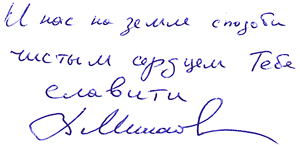 И нас на земле сподоби
чистым сердцем Тебе
славити